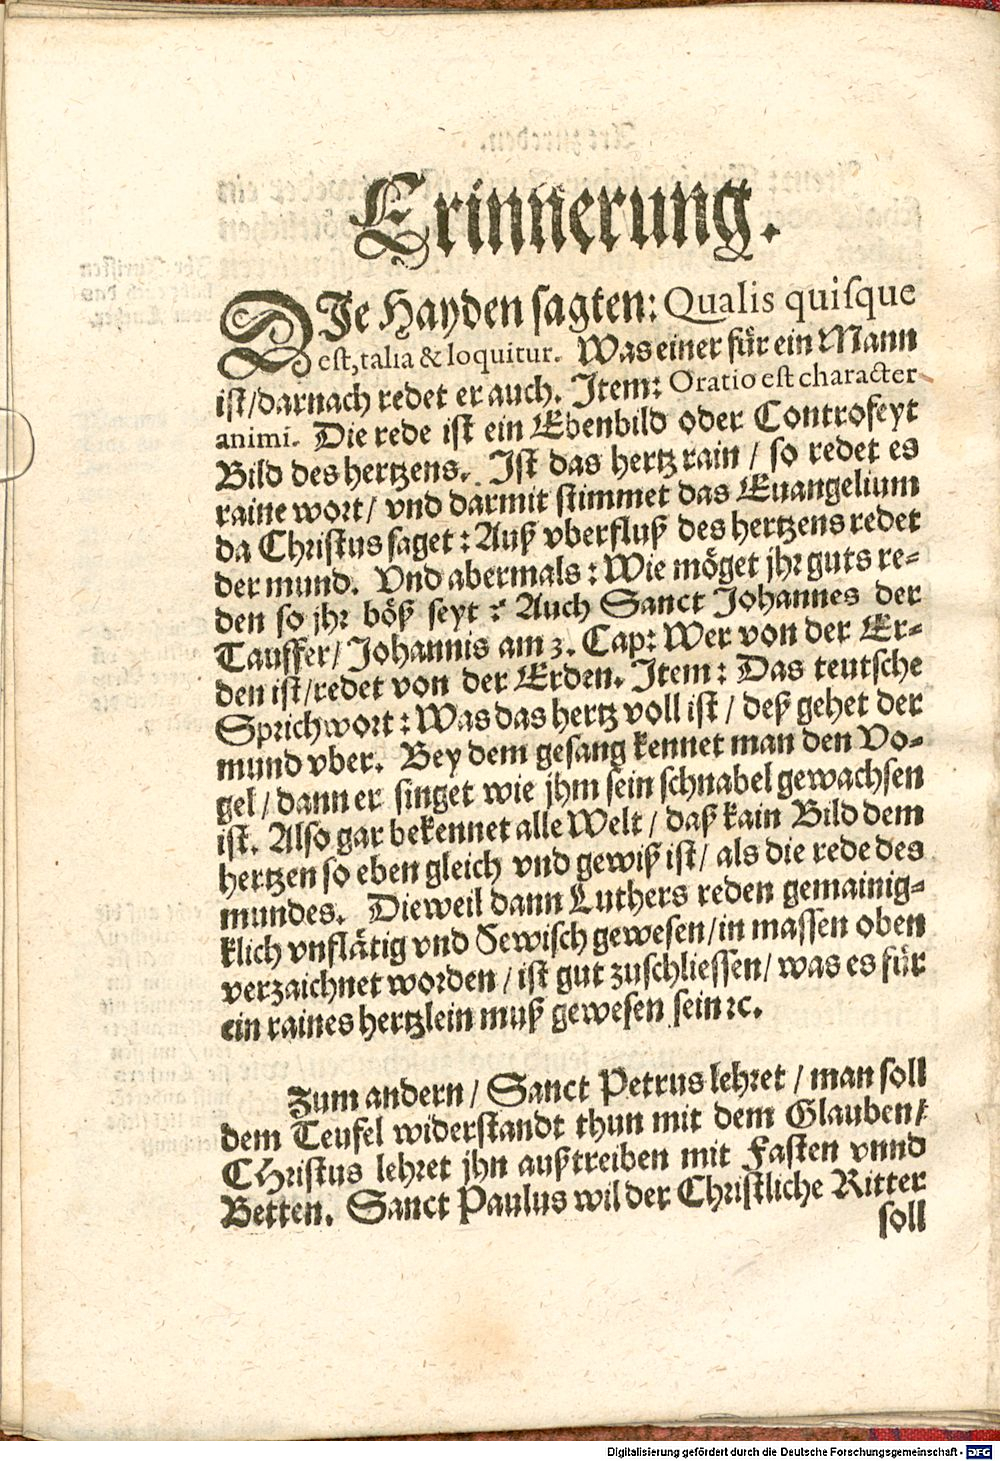 Erinnerung.
DIe Hayden sagten: Qualis quisque
est, talia & loquitur. Was einer für ein Mann
ist/darnach redet er auch. Item: Oratio est character
animi. Die rede ist ein Ebenbild oder Controfeyt
Bild des hertzens. Ist das hertz rain / so redet es
raine wort/ vnd darmit stimmet das Euangelium
da Christus saget: Auß vberfluß des hertzens redet
der mund. Vnd abermals: Wie möget jhr guts re-
den so jhr böß seyt? Auch Sanct Johannes der
Tauffer/ Johannis am 3. Cap: Wer von der Er-
den ist/redet von der Erden. Item: Das teutsche
Sprichwort: Was das hertz voll ist / deß gehet der
mund vber. Bey dem gesang kennet man den Vo-
gel/ dann er singet wie jhm sein schnabel gewachsen
ist. Also gar bekennet alle Welt/ daß kain Bild dem
hertzen so eben gleich vnd gewiß ist/ als die rede des
mundes. Dieweil dann Luthers reden gemainig-
klich vnflätig vnd Sewisch gewesen/in massen oben
verzaichnet worden/ ist gut zuschliessen/ was es für
ein raines hertzlein muß gewesen sein ꝛc.
Zum andern/ Sanct Petrus lehret/ man soll
dem Teufel widerstandt thun mit dem Glauben/
CHristus lehret jhn außtreiben mit Fasten vnnd
Betten. Sanct Paulus wil der Christliche Ritter
soll
Digitalisierung gefördert durch die Deutsche Forschungsgemeinschaft - DFG